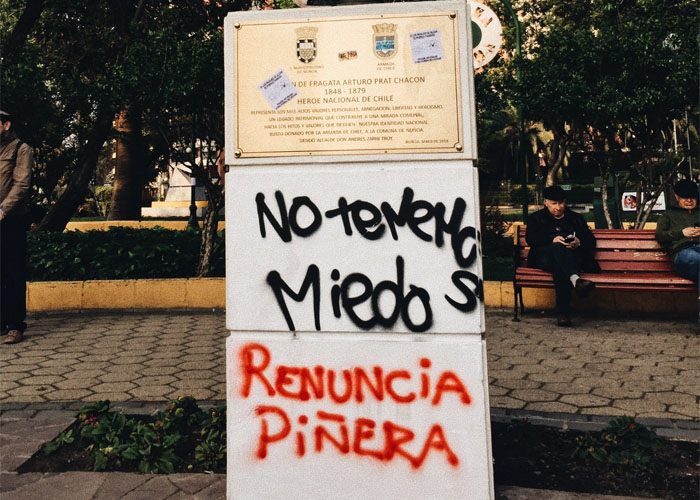 I. MUNICIPALIDAD
DE ÑUÑOA
ARMADA
DE CHILE
N DE FRAGATA ARTURO PRAT CHACÓN
1848 - 1879
HÉROE NACIONAL DE CHILE
REPRESENTA LOS MÁS ALTOS VALORES PERSONALES, ABNEGACIÓN, LIBERTAD Y HEROÍSMO,
UN LEGADO PATRIMONIAL QUE CONTRIBUYE A UNA MIRADA COMUNAL,
HACIA LOS HITOS Y VALORES QUE DEFINEN NUESTRA IDENTIDAD NACIONAL
BUSTO DONADO POR LA ARMADA DE CHILE, A LA COMUNA DE ÑUÑOA
SIENDO ALCALDE DON ANDRÉS ZARHI TROY.
No temernos
Miedo
RENUNCIA
PIÑERA